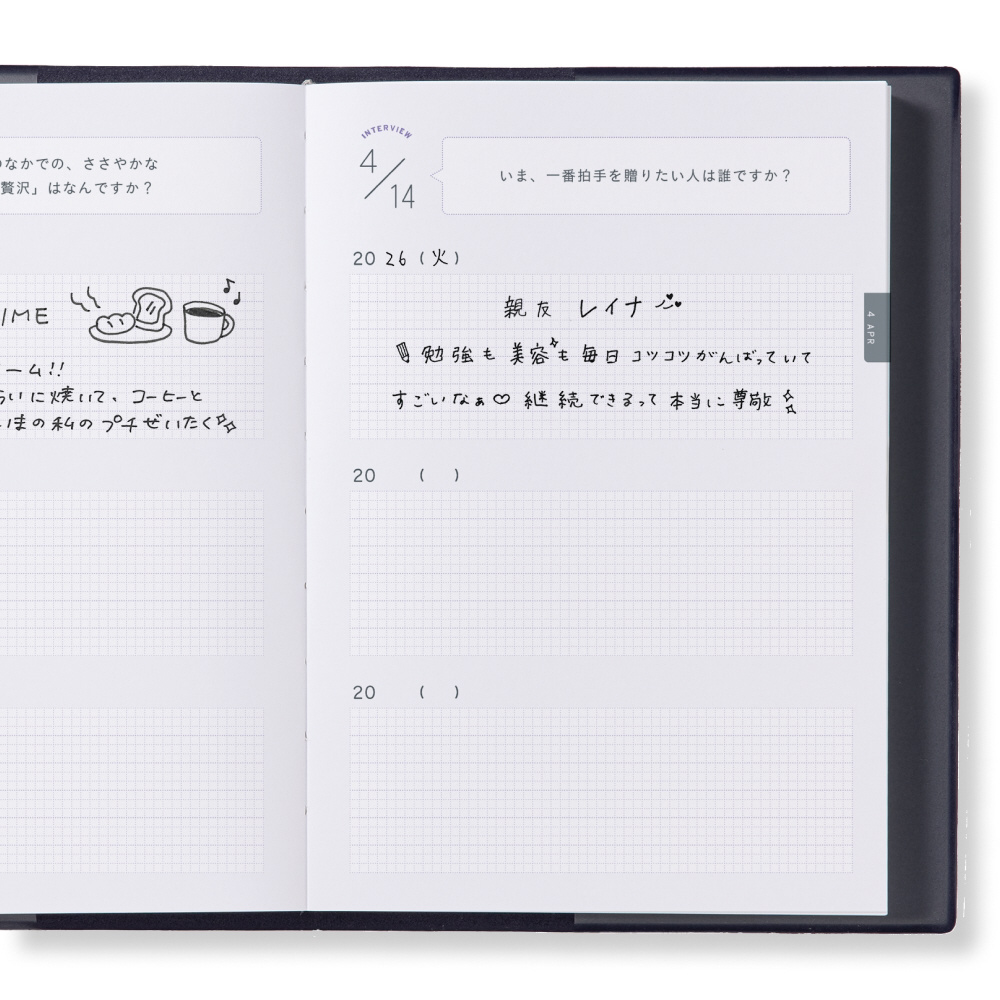 のなかでの、ささやかな
贅沢」はなんですか？
IME
ーム!!
らいに焼いて、コーヒーと
いまの私のプチぜいたく
INTERVIEW
4/14
いま、一番拍手を贈りたい人は誰ですか？
20 26 (火)
親友 レイナ
勉強も 美容も 毎日 コツコツがんばっていて
すごいなぁ♡ 継続できるって 本当に尊敬
20 ( )
20 ( )
4 APR